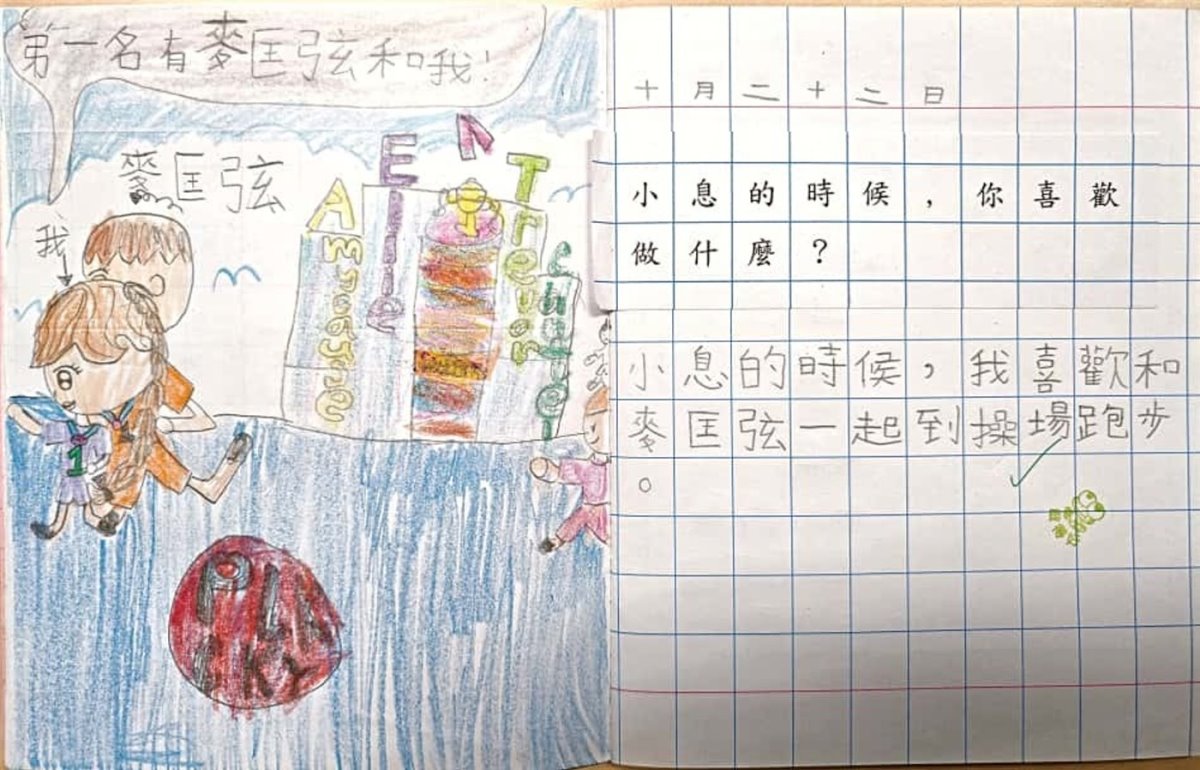 第一名有麥匡弦和我！
麥匡弦
我
1
Ellie
Trevor
十月二十二日
小息的時候，你喜歡
做什麼？
小息的時候，我喜歡和
麥匡弦一起到操場跑步
。